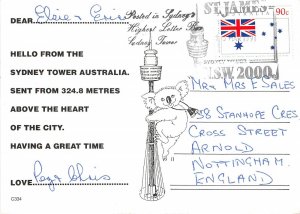 DEAR Elsie & Eric
Posted in Sydney's
Highest Letter Box
Sydney Tower
ST. JAMES
90c
N.S.W. 2000
HELLO FROM THE
SYDNEY TOWER AUSTRALIA.
SENT FROM 324.8 METRES
ABOVE THE HEART
OF THE CITY.
HAVING A GREAT TIME
LOVE
C334
Mr & Mrs E SALES
38 STANHOPE CRES
CROSS STREET
ARNOLD
NOTTINGHAM.
ENGLAND